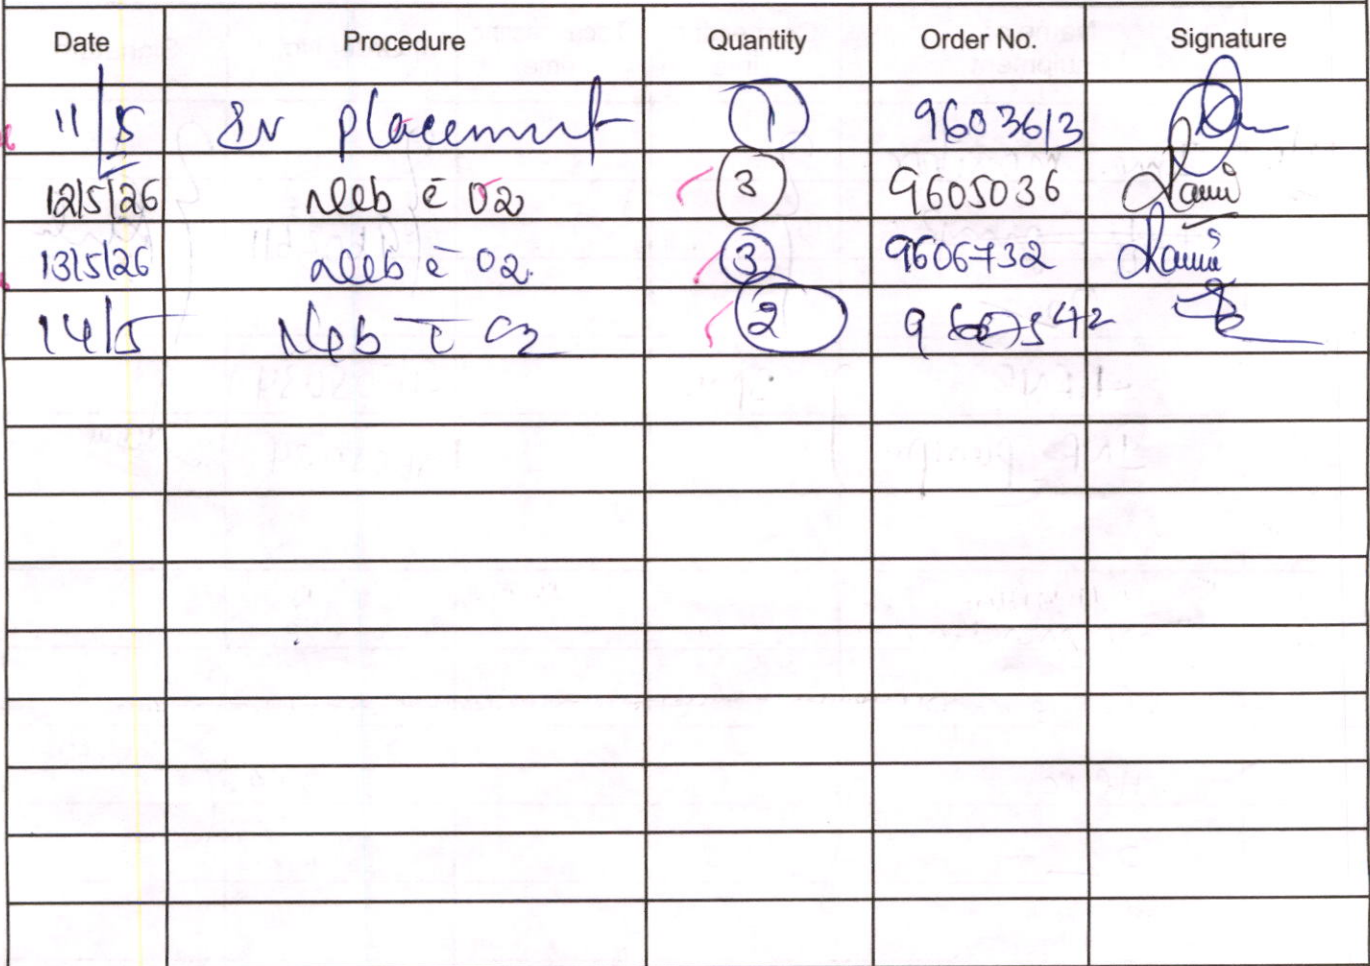 Date Procedure Quantity Order No. Signature
11/5 IV placement 1 9603613
12/5/26 Neb c̄ O2 3 9605036
13/5/26 Neb c̄ O2 3 9606732
14/5 Neb c̄ O2 2